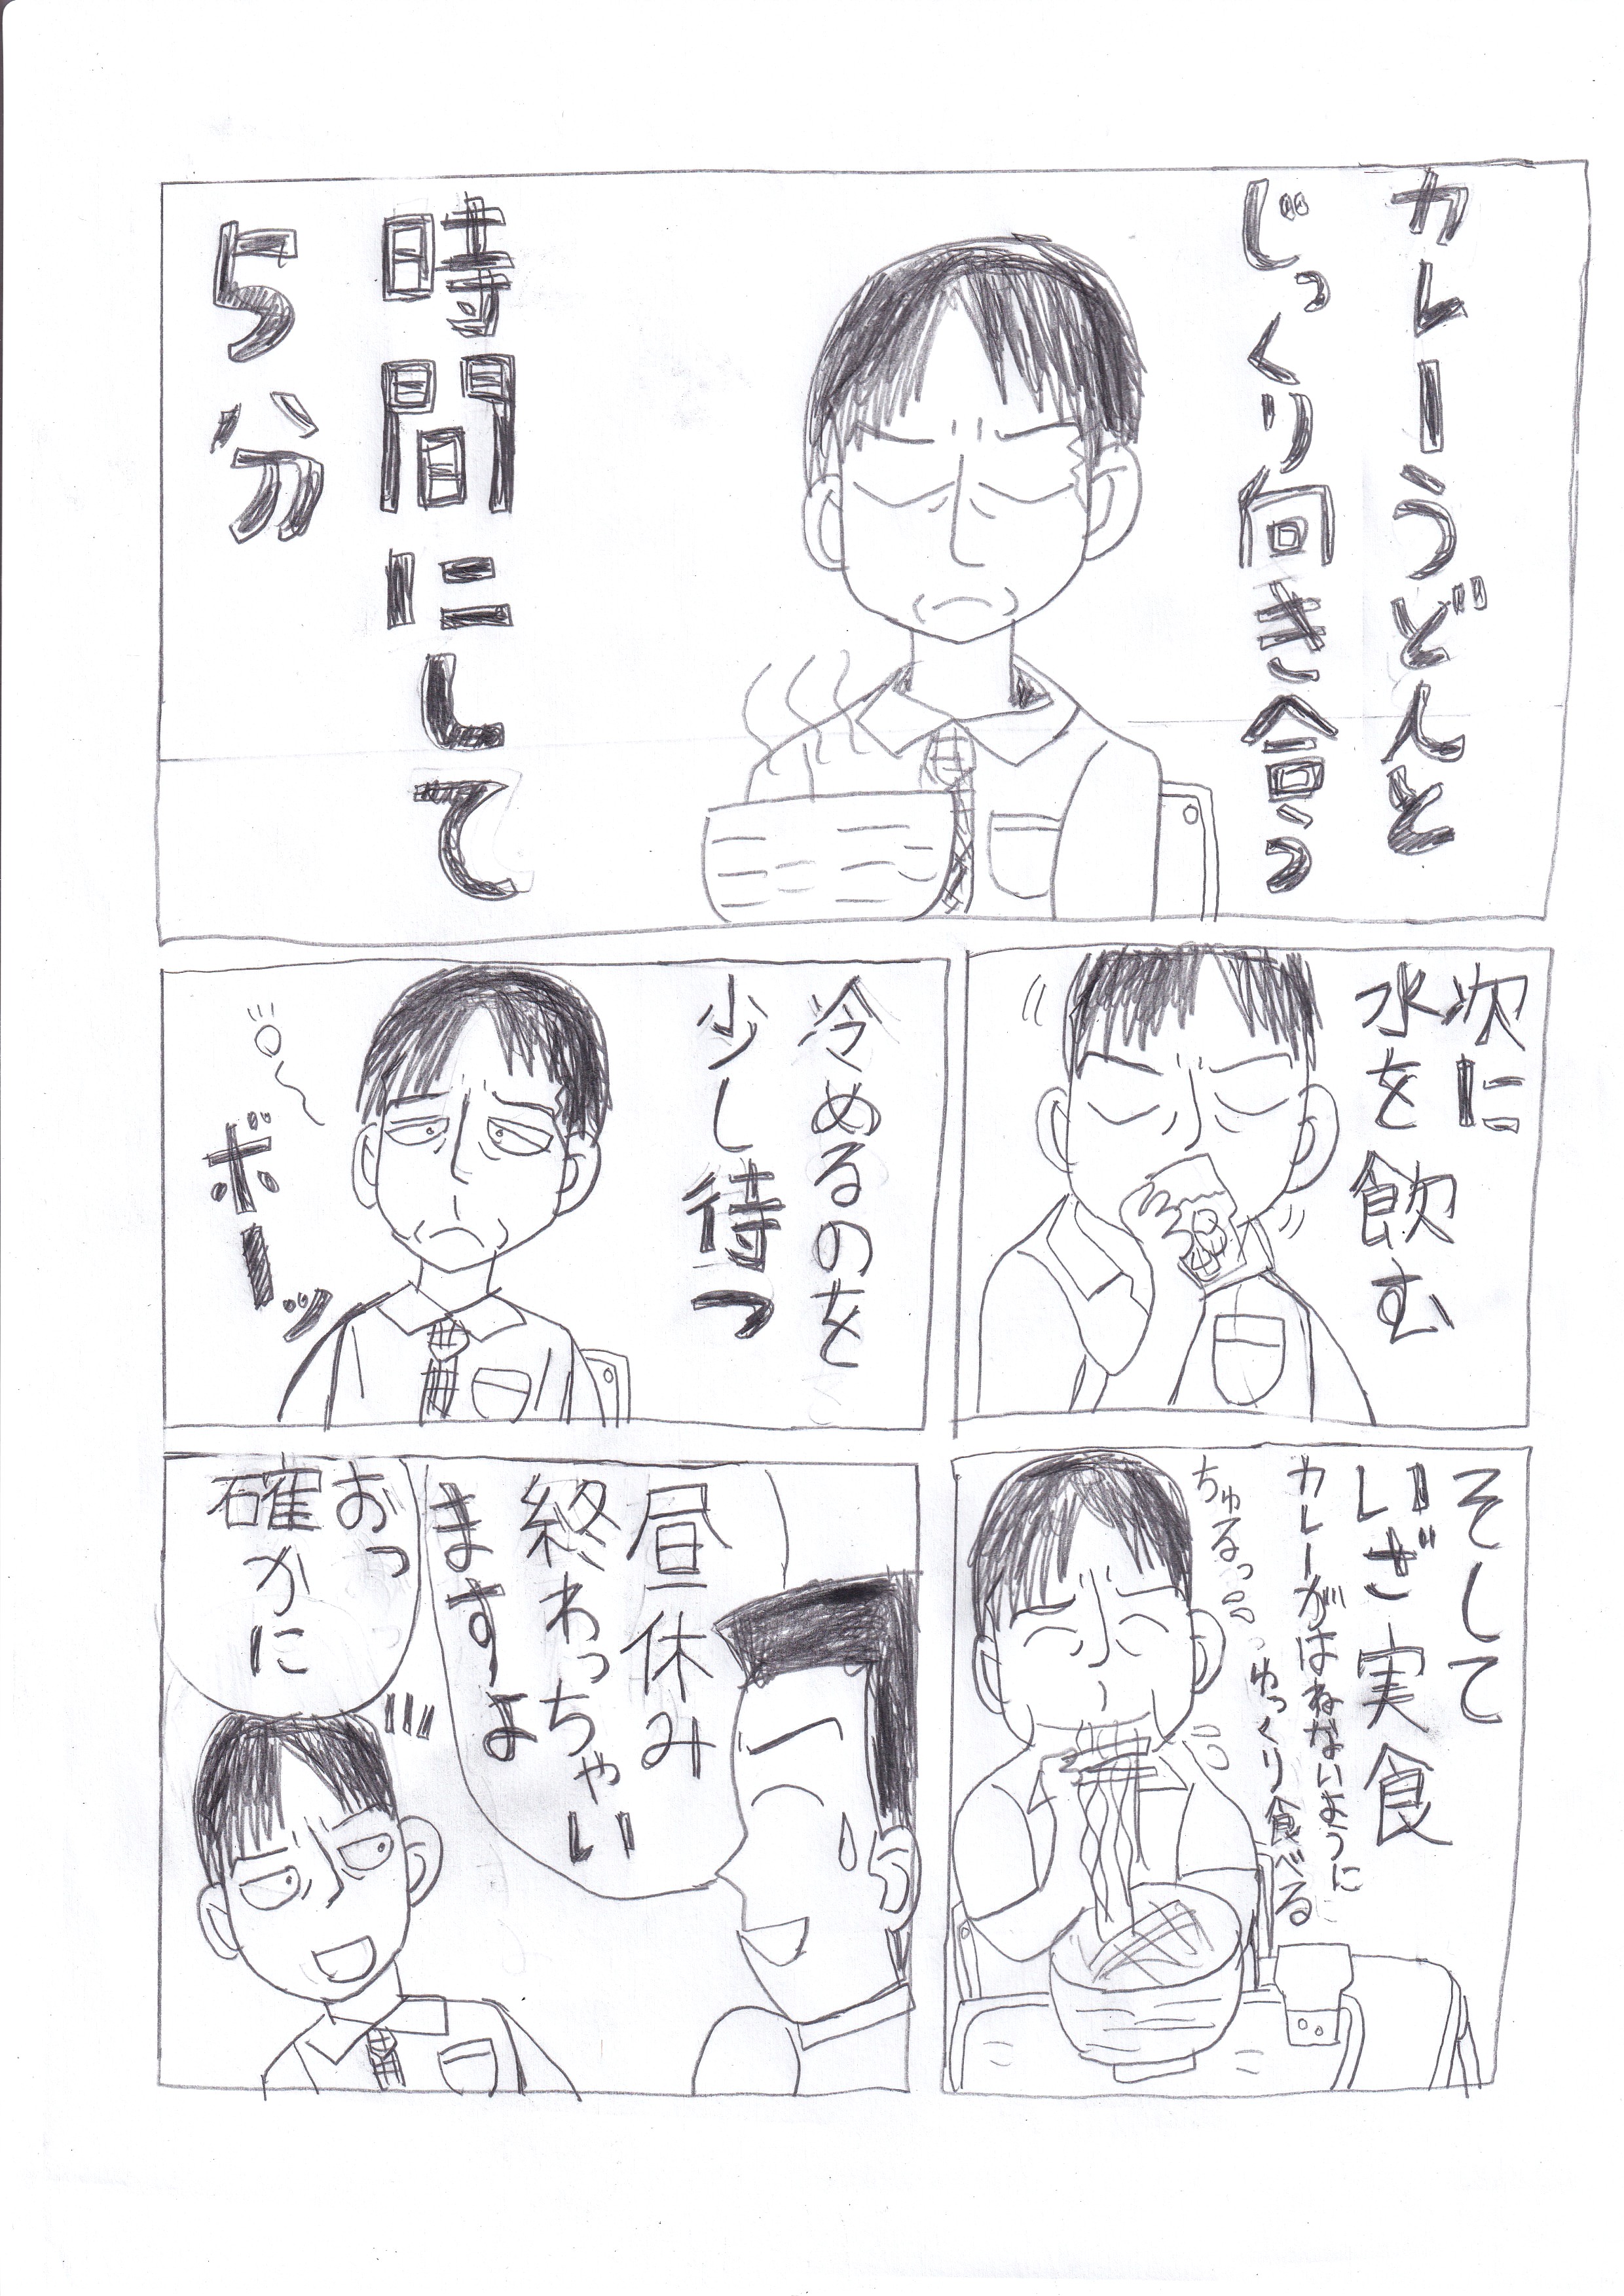 カレーうどんと
じっくり向き合う
時間にして
5分
次に
水を飲む
冷めるのを
少し待つ
ボーッ
そして
いざ実食
カレーがはねないように
ゆっくり食べる
ちゅるっ
昼休み
終わっちゃい
ますよ
おっ
確かに